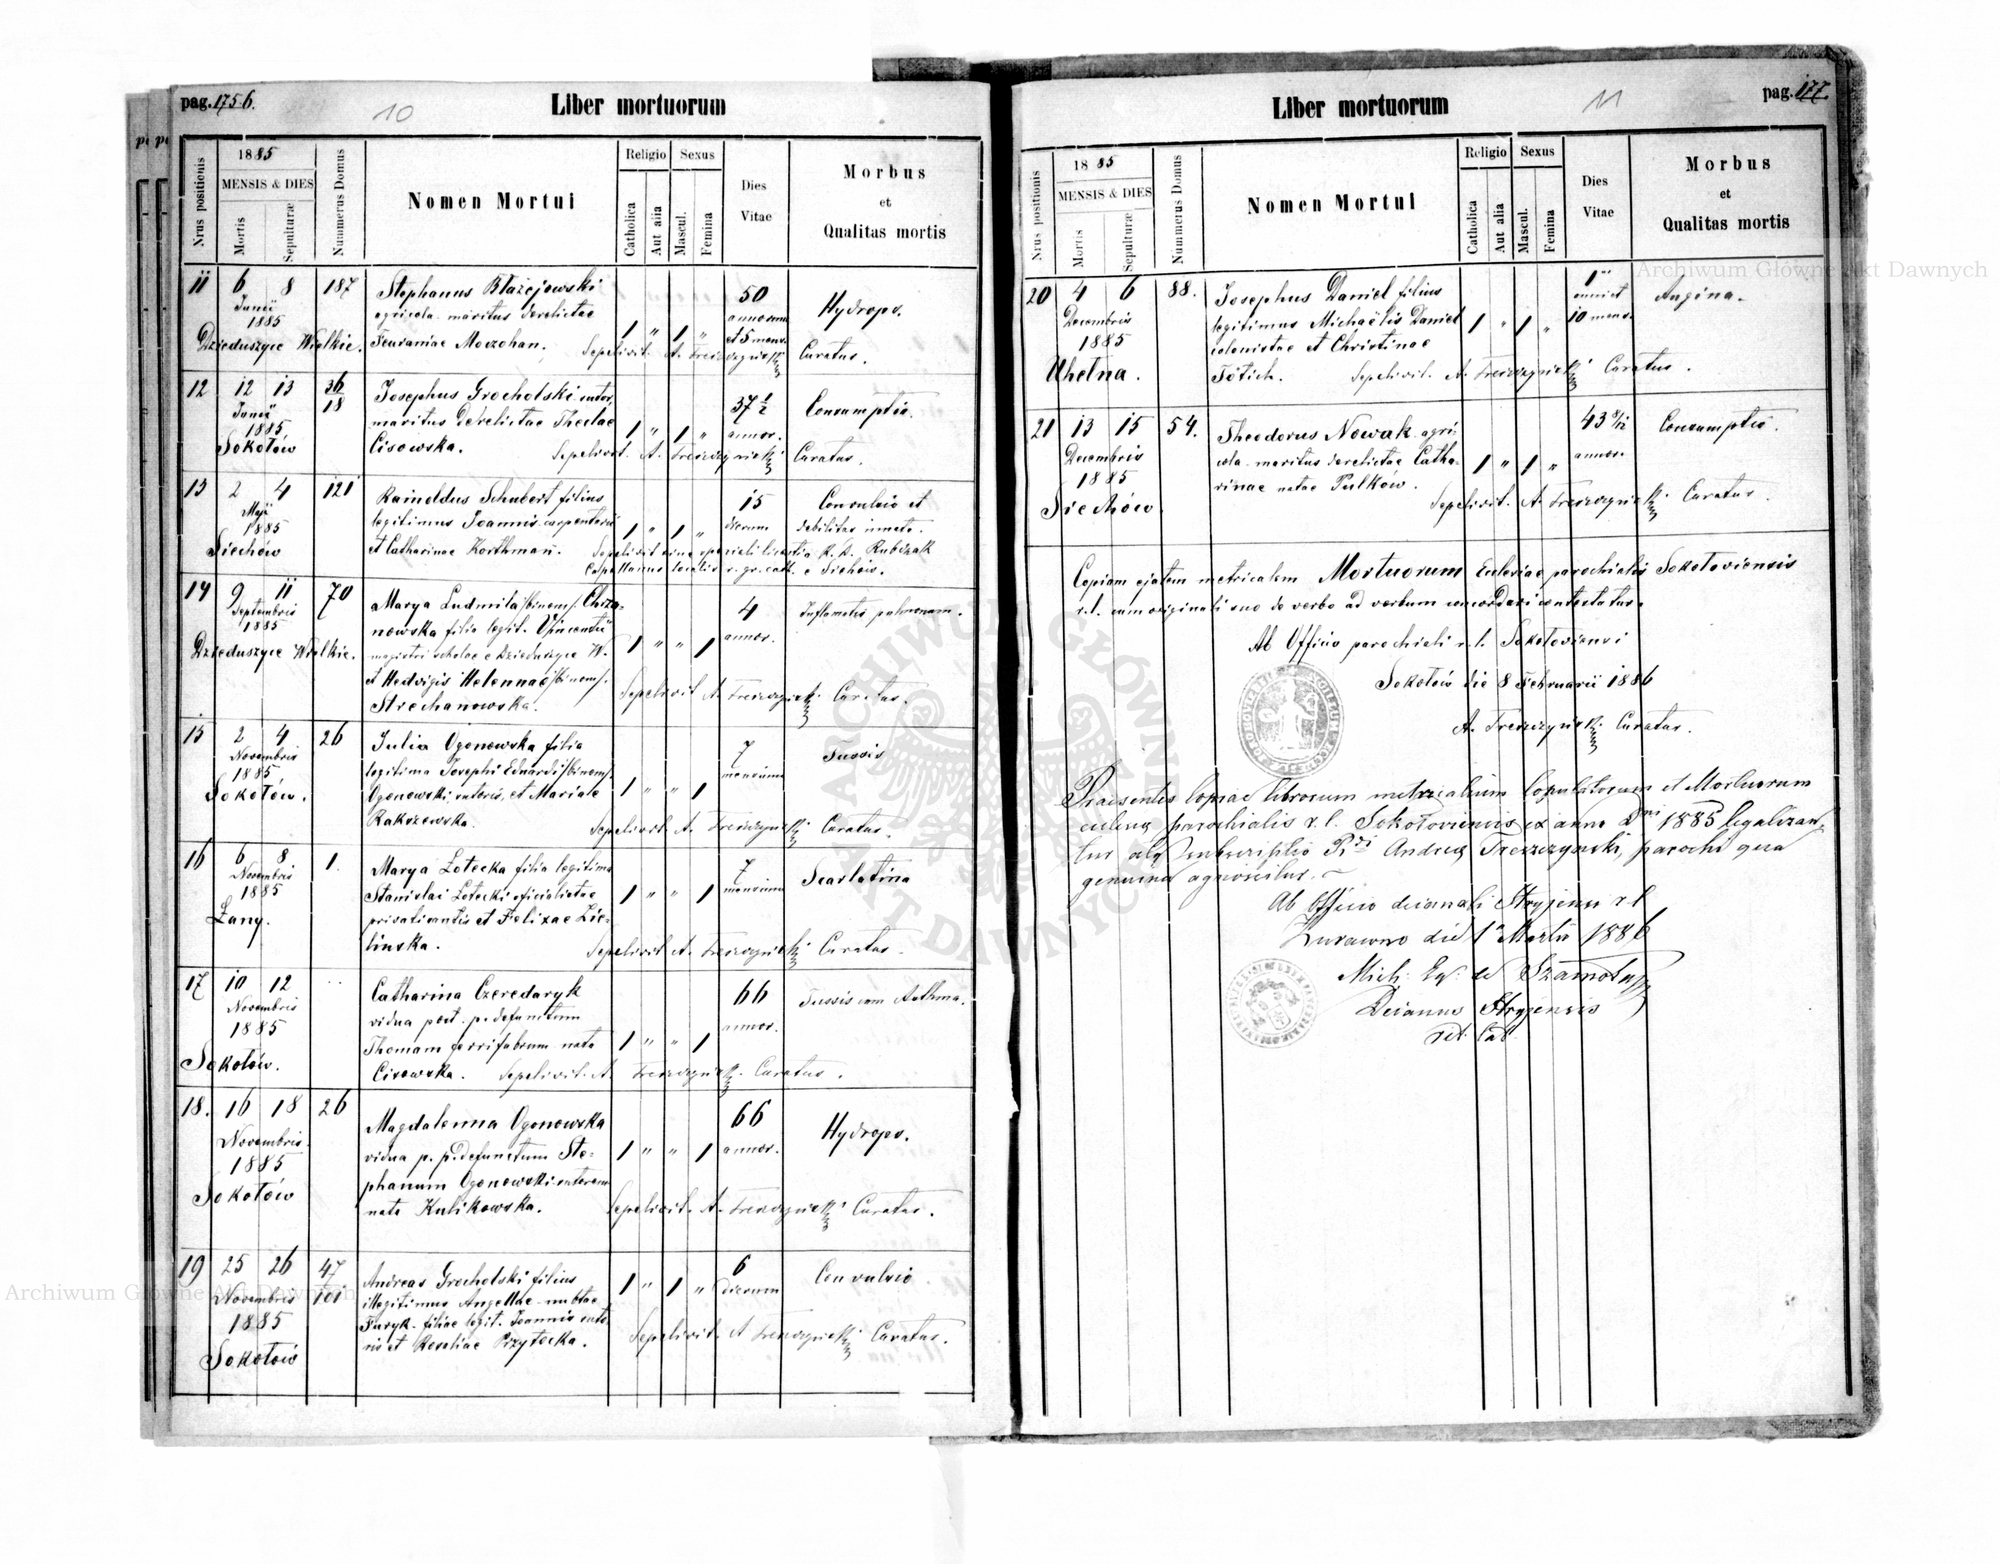 pag. 175 6.
10
Liber mortuorum
Nrus positionis
1885
MENSIS & DIES
Mortis
Sepulturæ
Nummerus Domus
Nomen Mortui
Religio
Catholica
Aut alia
Sexus
Mascul.
Femina
Dies
Vitae
Morbus
et
Qualitas mortis
11 6 8 187
Junii
1885
Dzieduszyce Wielkie.
Stephanus Błażejowski
agricola maritus derelictae
Moczohan.
1 " 1 "
50
annorum
et 5 mens.
Hydrops.
Sepelivit A. Treszczyński Curatus.
12 12 13 36
18
Junii
1885
Sokołów
Josephus Grocholski sutor,
maritus derelictae Theclae
Cisowska.
1 " 1 "
37 1/2
annor.
Consumptio.
Sepelivit A. Treszczyński Curatus.
13 2 4 121
Maji
1885
Siechów
Rainoldus Schubert filius
legitimus Joannis carpentarii
et Catharinae Korthman.
1 " 1 "
15
dierum
Convulsio et
debilitas innata.
Sepelivit sine speciali licentia R. d. Rubczak
Capellanus localis r. gr. cath. e Siehów.
14 9 11 70
Septembris
1885
Dzieduszyce Wielkie.
Marya Ludmila /binom/. Chrza-
nowska filia legit. Vincentii
magistri scholae e Dzieduszyce W.
et Hedvigis Helennae /binom/.
Strechanowska.
1 " " 1
4
annor.
Inflamatio pulmonum.
Sepelivit A. Treszczyński Curatus.
15 2 4 26
Novembris
1885
Sokołów.
Julia Ogonowska filia
legitima Josephi Eduardi /binom/
Ogonowski sutoris, et Mariae
Rakszewska.
1 " " 1
7
mensium
Tussis
Sepelivit A. Treszczyński Curatus.
16 6 8 1.
Novembris
1885
Łany.
Marya Lotecka filia legitima
Stanislai Lotecki oficialistae
privatisantis et Felixae Zie-
linska.
1 " " 1
7
mensium
Scarlatina
Sepelivit A. Treszczyński Curatus.
17 10 12
Novembris
1885
Sokołów.
Catharina Czeredaryk
vidua post p. defunctum
Thomam ferrifabrum nata
Cisowska.
1 " " 1
66
annor.
Tussis cum Asthma.
Sepelivit A. Treszczyński Curatus.
18. 16 18 26
Novembris
1885
Sokołów
Magdalenna Ogonowska
vidua p. p. defunctum Ste-
phanum Ogonowski sutorem
nata Kulikowska.
1 " " 1
66
annor.
Hydrops.
Sepelivit A. Treszczyński Curatus.
19 25 26 47
101
Novembris
1885
Sokołów
Andreas Grocholski filius
illegitimus Angellae nuptae
Furyk filiae legit. Joannis suto-
ris et Rosaliae Przytocka.
1 " 1 "
6
dierum
Convulsio
Sepelivit A Treszczyński Curatus.
Liber mortuorum
11
pag. 177.
Nrus positionis
1885
MENSIS & DIES
Mortis
Sepulturæ
Nummerus Domus
Nomen Mortui
Religio
Catholica
Aut alia
Sexus
Mascul.
Femina
Dies
Vitae
Morbus
et
Qualitas mortis
20 4 6 88.
Decembris
1885
Uhelna.
Josephus Daniel filius
legitimus Michaëlis Daniel
colonistae et Christinae
Tötich.
1 " 1 "
1
anni et
10 mens.
Angina.
Sepelivit A. Treszczyński Curatus.
21 13 15 54.
Decembris
1885
Siechów.
Theodorus Nowak agri-
cola maritus derelictae Catha-
rinae natae Pulków.
1 " 1 "
43 8/12
annor.
Consumptio.
Sepelivit A. Treszczyński Curatus.
Copiam ejatem metricalem Mortuorum Ecclesiae parochialis Sokołoviensis
r. l. cum originali suo de verbo ad verbum concordari contestatur.
Ab Officio parochiali r. l. Sokołoviensi
Sokołów die 8 Februarii 1886
A. Treszczyński Curatus.
Praesentes Copiae librorum metricalium Copulatorum et Mortuorum
eclesiæ parochialis r. l. Sokołoviensis ex anno Dni 1885 legalizan-
tur atq subscriptio Andreæ Treszczyński, parochi qua
genuina agnoscitur.
Ab Officio decanali Stryjensi r l
Żurawno die 1 Martii 1886
Mich: Eq: de Szamoty
Decanus Stryjensis
Archiwum Główne Akt Dawnych
Archiwum Główne Akt Dawnych
ARCHIWUM GŁÓWNE AKT DAWNYCH